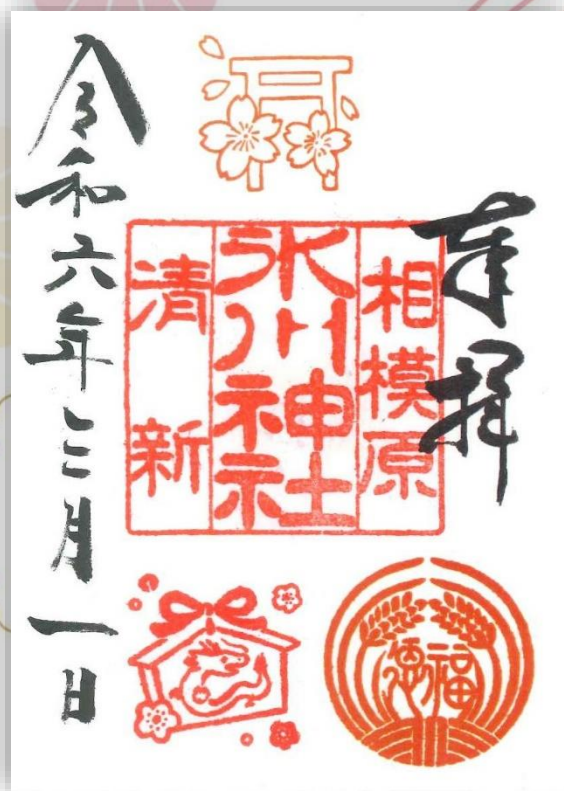 奉拝
相模原
氷川神社
清新
令和六年三月一日
福徳